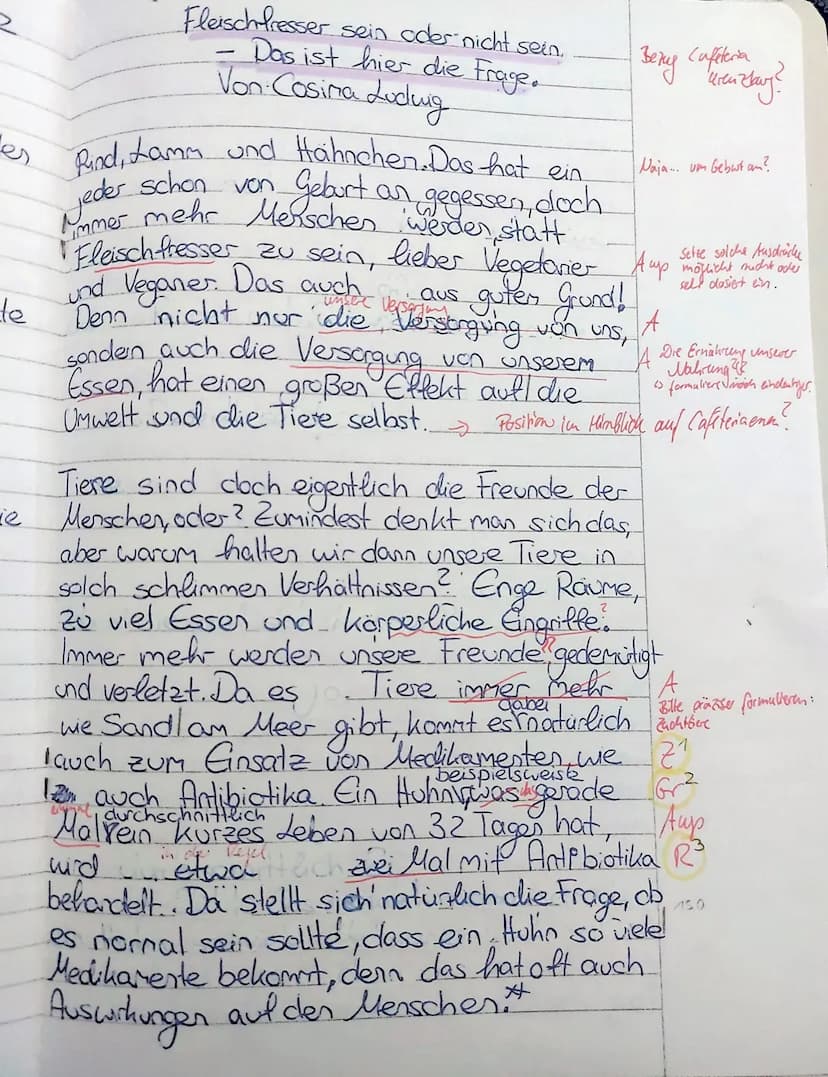 Fleischfresser sein oder nicht sein.
– Das ist hier die Frage.
Von: Cosima Ludwig
Bezug Cafeteria
Rind, Lamm und Hähnchen. Das hat ein
Naja... von Geburt an?
jeder schon von Geburt an gegessen, doch
immer mehr Menschen werden, statt
Fleischfresser zu sein, lieber Vegetarier
A wp
Setze solche Ausdrücke
möglichst nicht oder
sehr dosiert ein.
und Veganer. Das auch aus gutem Grund!
unsere Versorgung
Denn nicht nur die Versorgung von uns,
A
sondern auch die Versorgung von unserem
A Die Ernährung unserer
Nahrung?
Essen, hat einen großen Effekt auf die
formuliere noch eindeutiger.
Umwelt und die Tiere selbst.
→ Position im Hinblick auf Cafeteriaessen?
Tiere sind doch eigentlich die Freunde der
Menschen, oder? Zumindest denkt man sich das,
aber warum halten wir dann unsere Tiere in
solch schlimmen Verhältnissen? Enge Räume,
zu viel Essen und körperliche Eingriffe.
Immer mehr werden unsere Freunde gedemütigt
und verletzt. Da es Tiere immer mehr
A
Bitte präziser formulieren:
Zuchttiere
wie Sand am Meer gibt, kommt es dabei natürlich
auch zum Einsatz von Medikamenten, wie
Z¹
beispielsweise
auch Antibiotika. Ein Huhn, was gerade
Gr²
durchschnittlich
Mal ein kurzes Leben von 32 Tagen hat,
Awp
in der Regel
wird etwa zwei Mal mit Antibiotika
R³
behandelt. Da stellt sich natürlich die Frage, ob
es normal sein sollte, dass ein Huhn so viele
Medikamente bekommt, denn das hat oft auch
Auswirkungen auf den Menschen.*